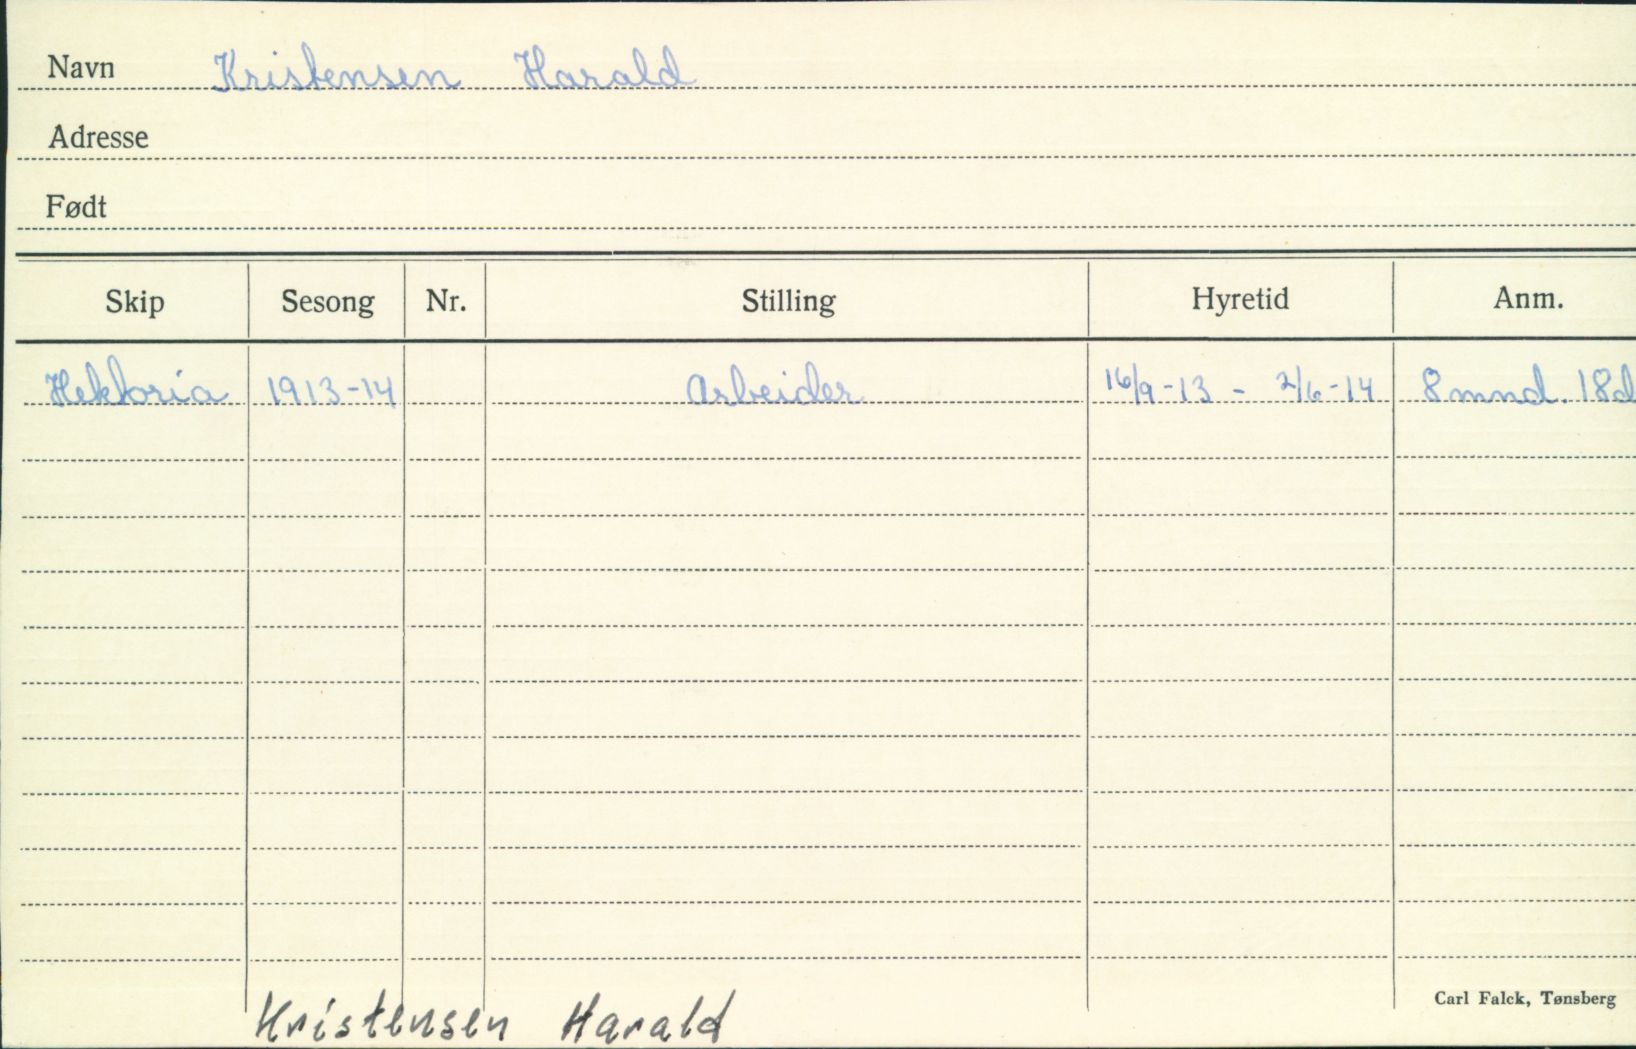 Navn Kristensen Harald
Adresse
Født
Skip Sesong Nr. Stilling Hyretid Anm.
Hektoria 1913-14 Arbeider 16/9-13 - 2/6-14 8 mnd. 18d
Carl Falck, Tønsberg
Kristensen Harald